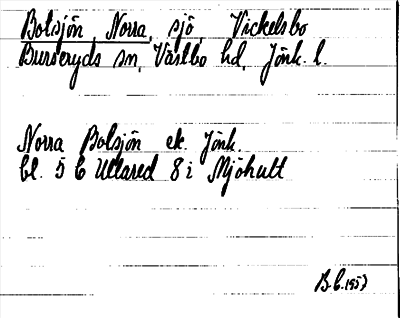 Bolsjön, Norra, sjö, Vickelsbo
Burseryds sn, Västbo hd, Jönk. l.
Norra Bolsjön ek. Jönk.
bl. 5 C Ullared 8 i Mjöhult
B.C. 1953